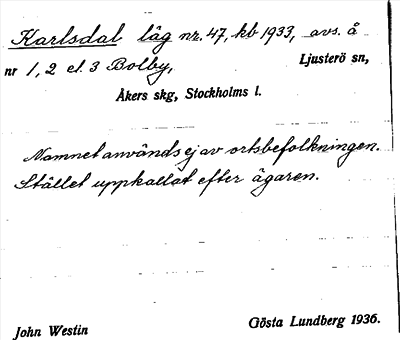 Karlsdal läg nr. 47, kb 1933, avs. å
nr 1, 2 el. 3 Bolby, Ljusterö sn,
Åkers skg, Stockholms l.
Namnet används ej av ortsbefolkningen.
Stället uppkallat efter ägaren.
John Westin Gösta Lundberg 1936.